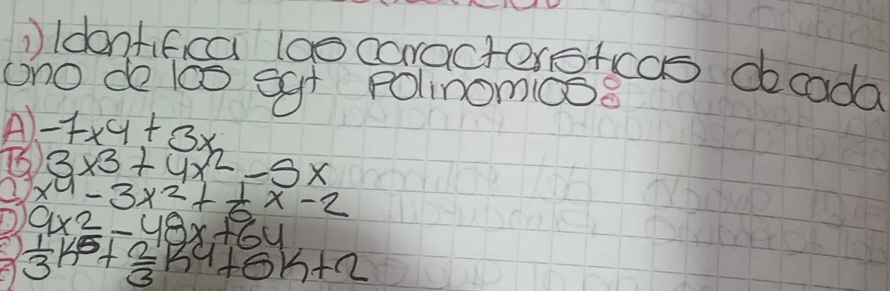 1) Identifica las características de cada
uno de los sgt Polinomios:
A) -7x4 + 3x
B) 3x3 + 4x2 - 5x
C) x4 - 3x2 + 1/6 x - 2
D) 9x2 - 48x + 64
E) 1/3 h5 + 2/3 h4 + 5h + 2